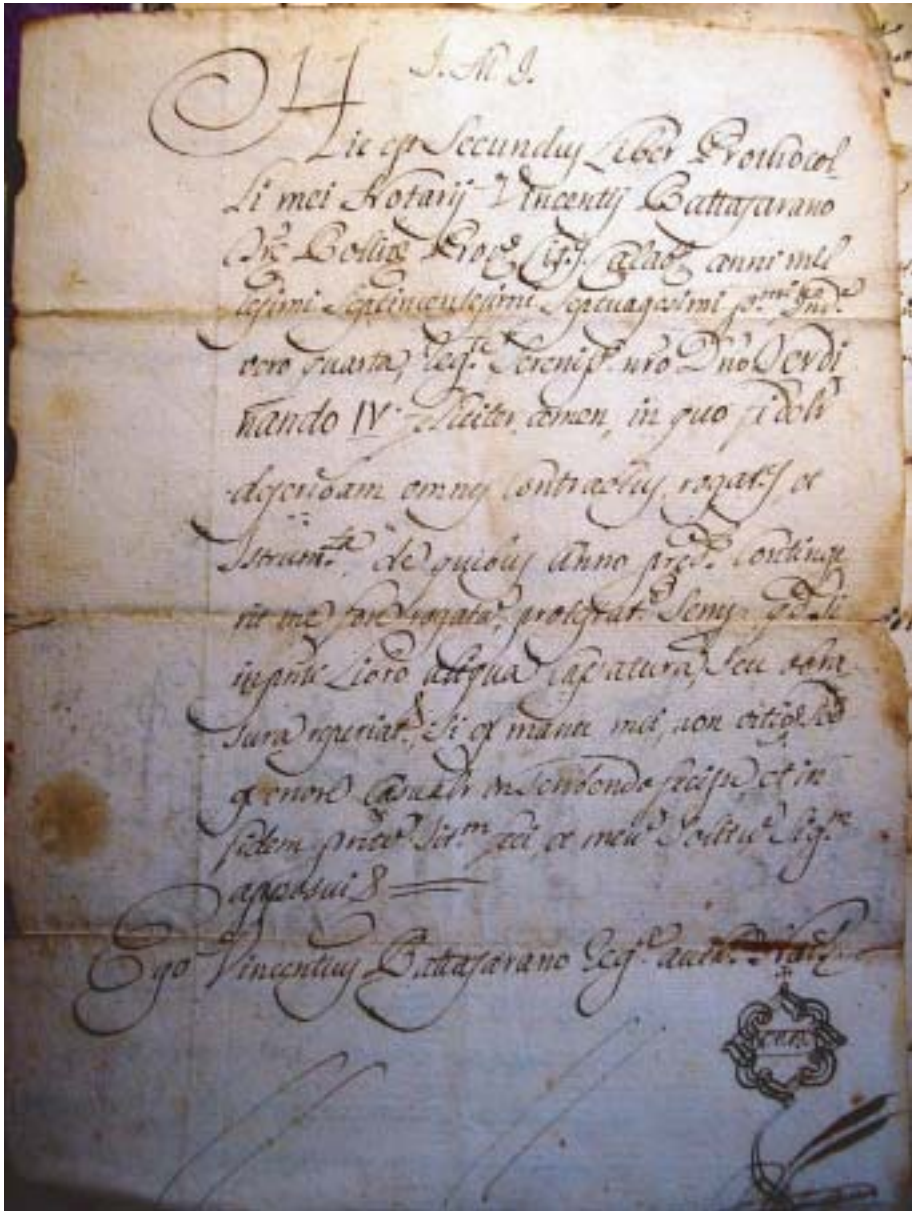 J. M. J.
Hic est Secundus Liber Prothocol
li mei Notarij Vincentij Battafarano
Prov.
anni mil
lesimi Septincentesimi Septuagesimi p.mi Ind.e
vero quarta, Reg.e Sereniss. nro Dno Ferdi
nando IV. feliciter, amen, in quo fideli
describam omnes Contractus, rogatus, et
Istrum.ta, de quibus Anno pred.o Continge
rit me fore rogatu, protestat.
Libro aliqua Cassatura, Seu abra
sura reperiat., manu mei, non vitio, sed
errore Casuali in scribendo et in
fidem feci, et meu Solitu Sig.m
apposui
Ego Vincentius Battafarano Reg.a auth.e Not.s